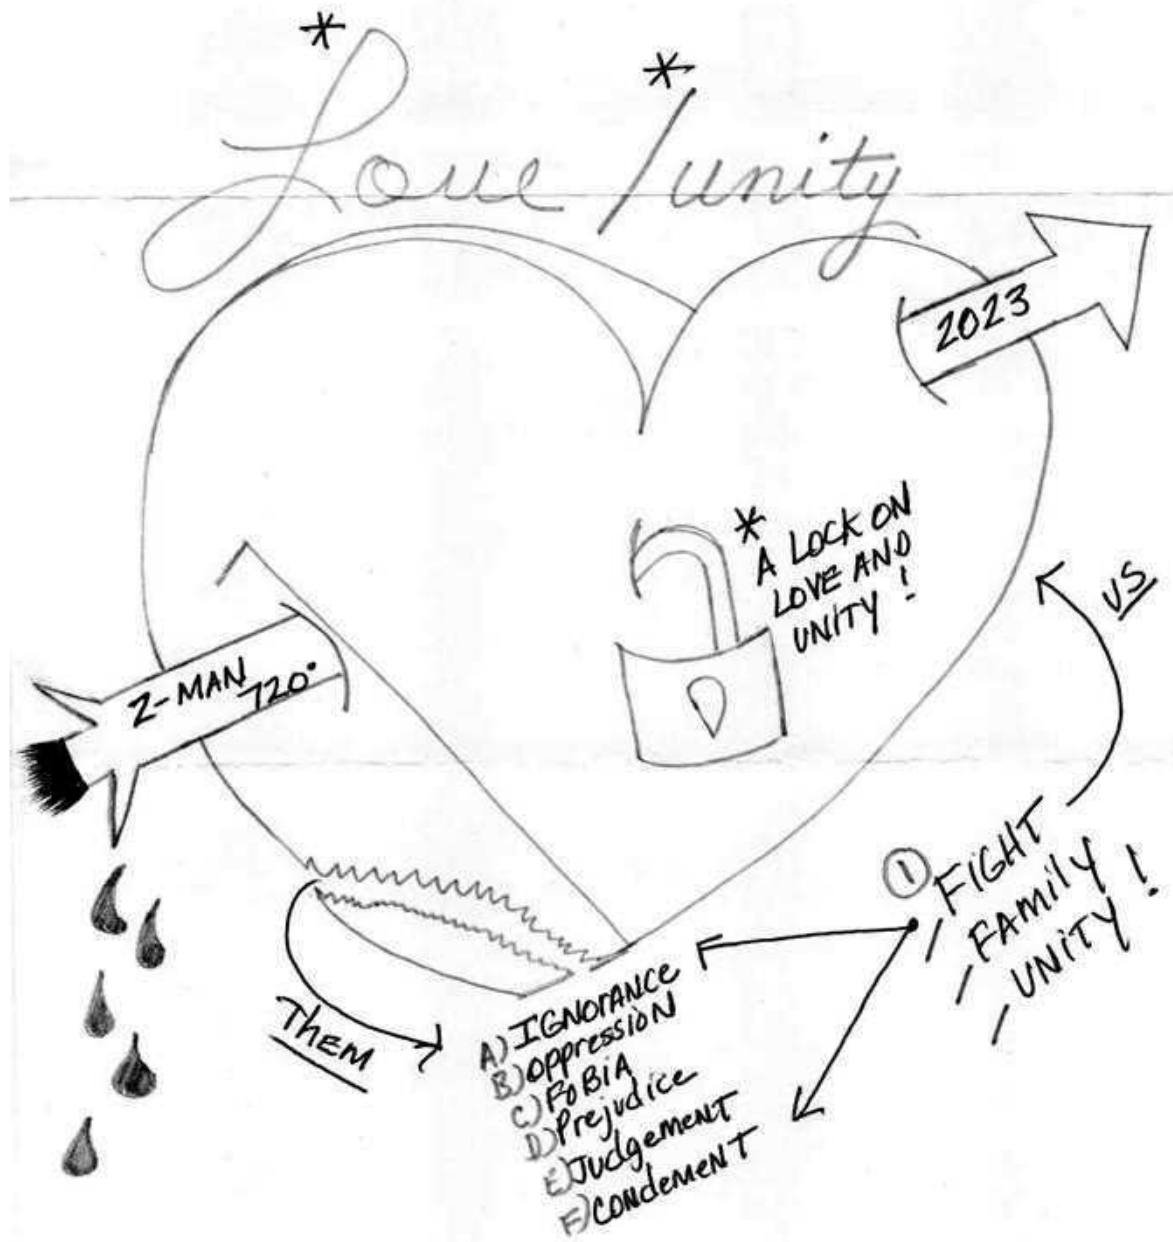 * Love * / unity
2023
* A LOCK ON
LOVE AND
UNITY!
US
Z-MAN
720°
① FIGHT
/ FAMILY
/ UNITY!
/
THEM
A) IGNORANCE
B) OPPRESSION
C) FOBIA
D) Prejudice
E) Judgement
F) CONDEMENT